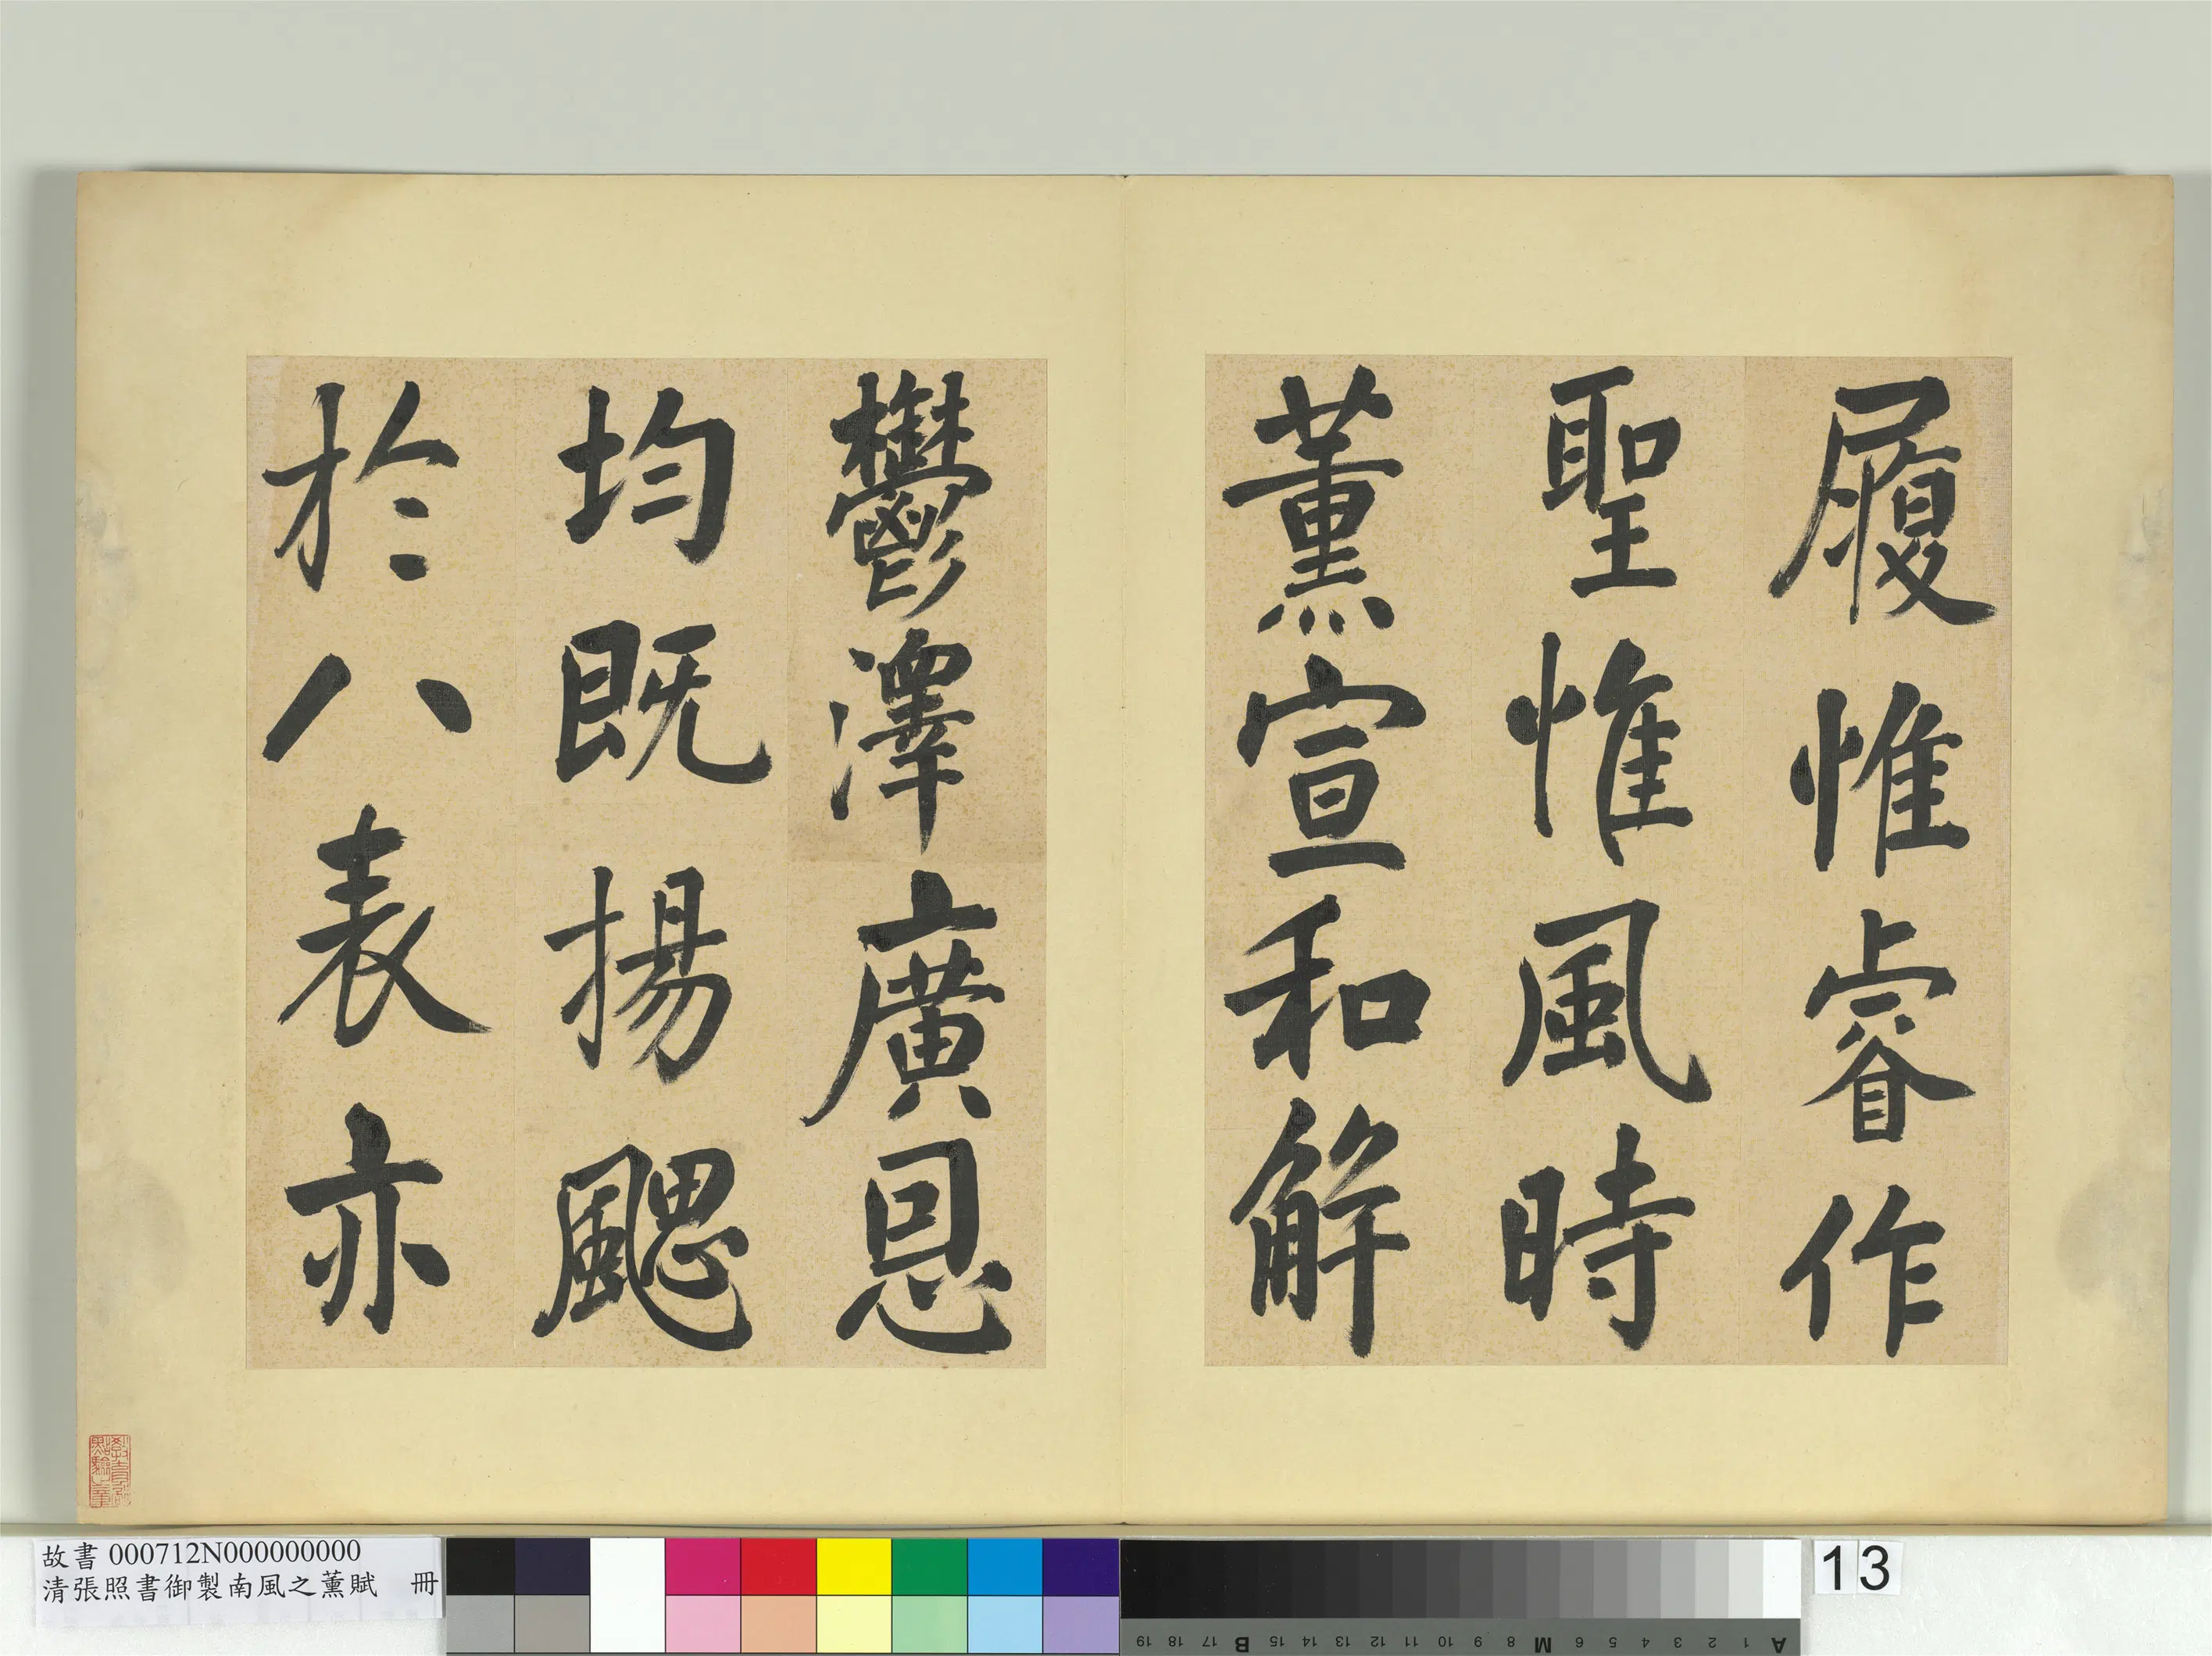 履惟睿作
聖惟風時
薰宣和解
鬱澤廣恩
均既揚颸
於八表亦
故書 000712N000000000
清張照書御製南風之薰賦 冊
13
A 1 2 3 4 5 6 M 8 9 10 11 12 13 14 15 B 17 18 19